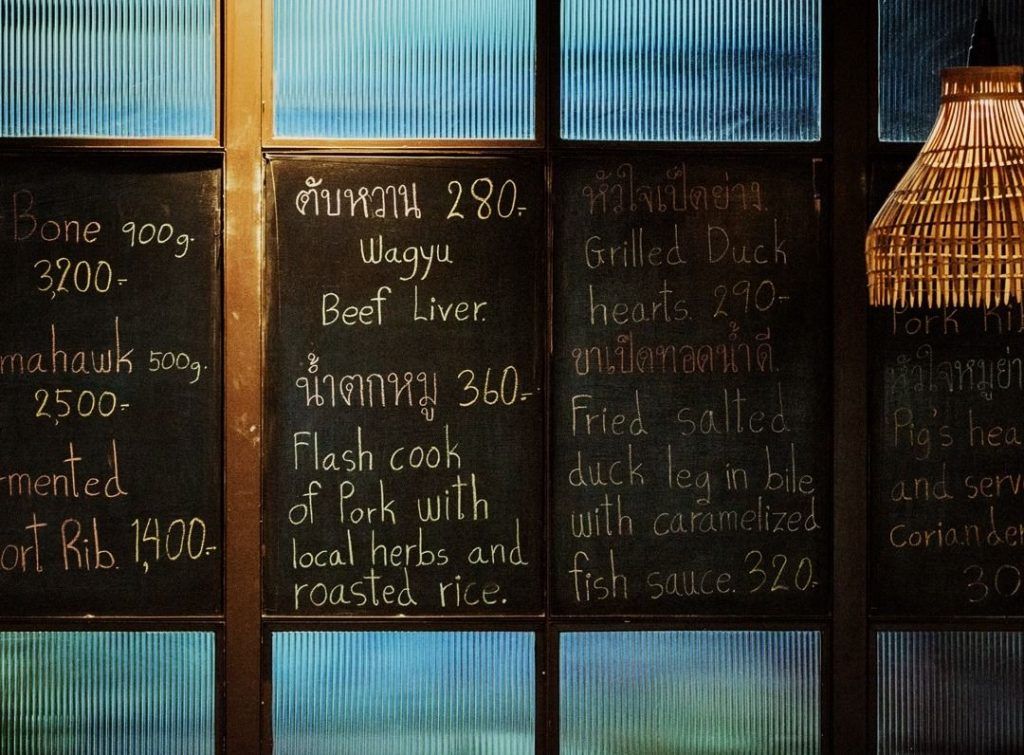 Bone 900g.
3,200.-
mahawk 500g.
2500.-
rmented
ort Rib. 1,400.-
ตับหวาน 280.-
Wagyu
Beef Liver.
น้ำตกหมู 360.-
Flash cook
of Pork with
local herbs and
roasted rice.
หัวใจเป็ดย่าง.
Grilled Duck
hearts. 290.-
ขาเป็ดทอดน้ำดี.
Fried salted
duck leg in bile
with caramelized
fish sauce. 320.-
Pork Rib
หัวใจหมูย่า
Pig's hea
and serv
Coriander
30